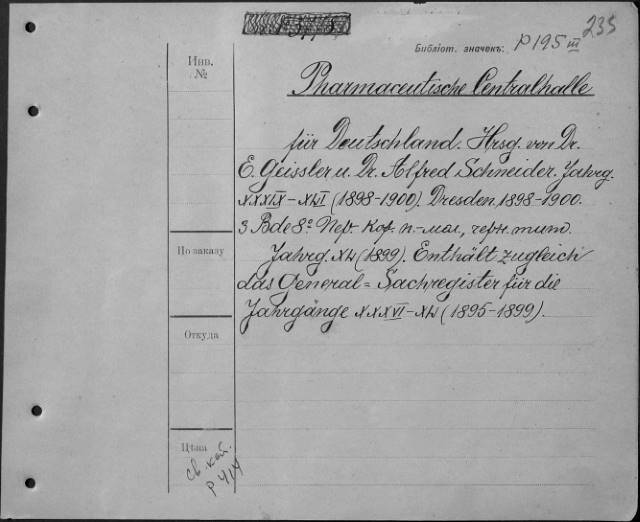 235
Библіот. значекъ: P 195 III
Инв.
№
Pharmaceutische Centralhalle
für Deutschland. Hrsg. von Dr.
E. Geissler u. Dr. Alfred Schneider. Jahrg.
XXXIX–XLI (1898–1900). Dresden, 1898–1900.
3 Bde 8º. Пер. кор. п.-мал, черн. тит.
По заказу
Jahrg. XL (1899). Enthält zugleich
das General=Sachregister für die
Jahrgänge XXXVI–XL (1895–1899).
Откуда
Цѣна
Св. кат.
P 414